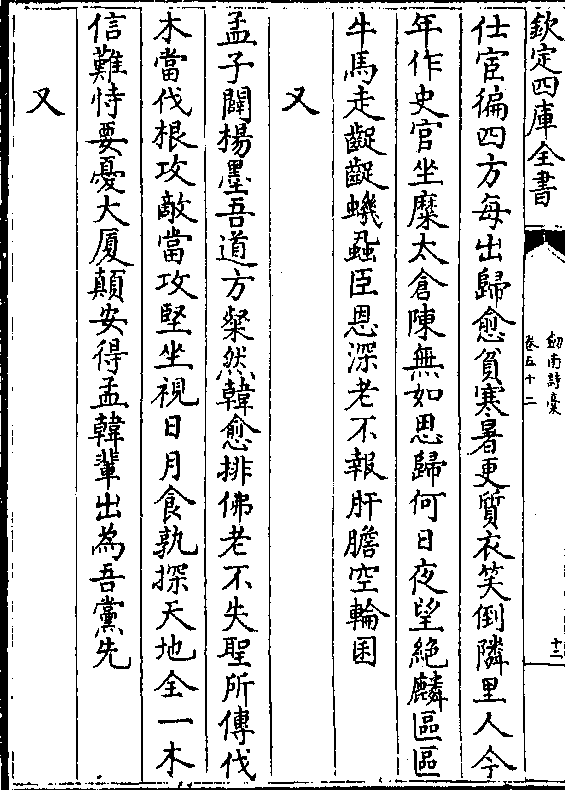 欽定四庫全書
劒南詩稾
卷五十二
十二
仕宦徧四方每出歸愈貧寒暑更質衣笑倒隣里人今
年作史官坐糜太倉陳無如思歸何日夜望絶麟區區
牛馬走齪齪蟣蝨臣恩深老不報肝膽空輪囷
又
孟子闢楊墨吾道方粲然韓愈排佛老不失聖所傳伐
木當伐根攻敵當攻堅坐視日月食孰探天地全一木
信難恃要憂大厦顛安得孟韓輩出為吾黨先
又